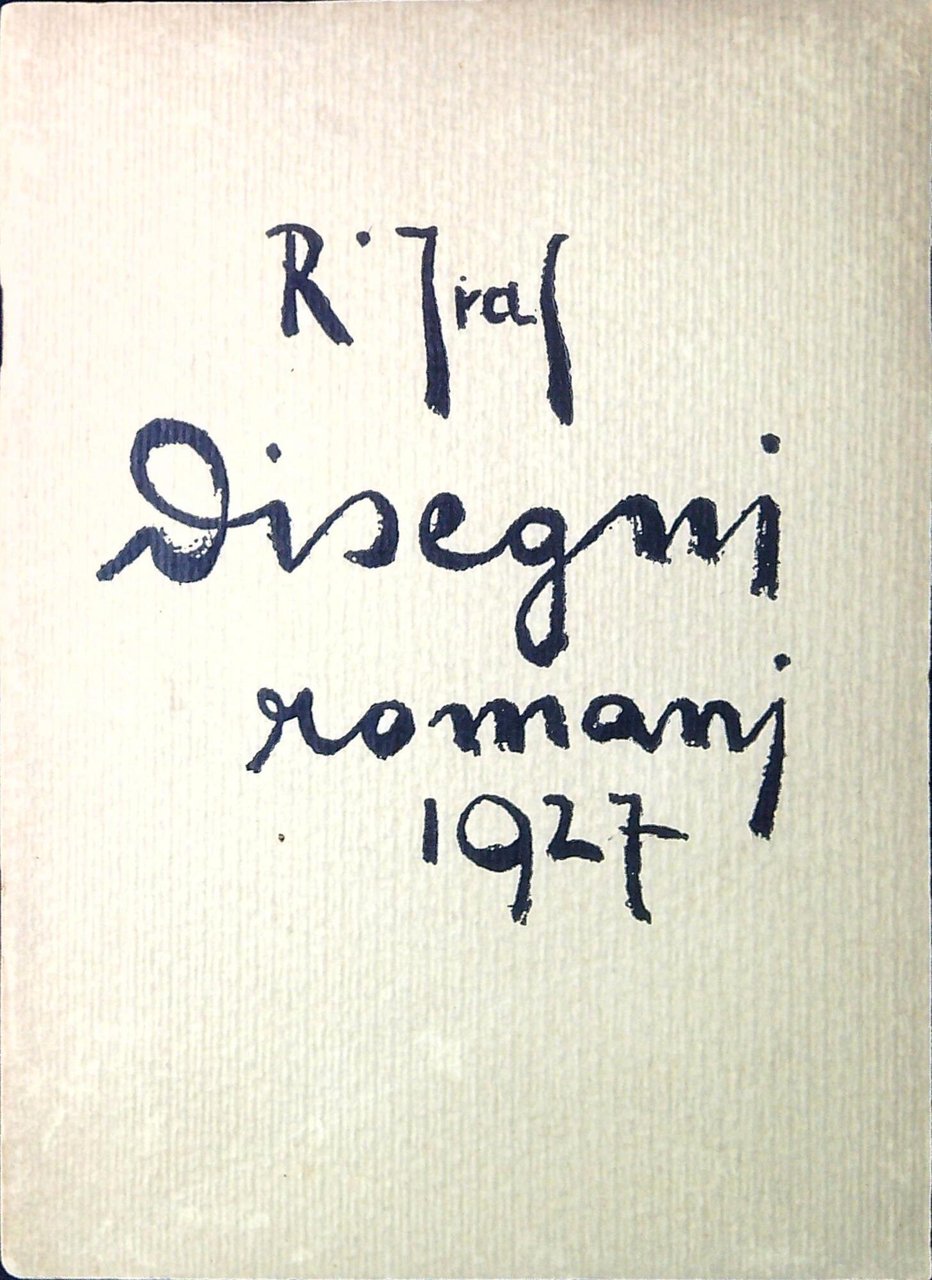 R. Iras
Disegni
romani
1927